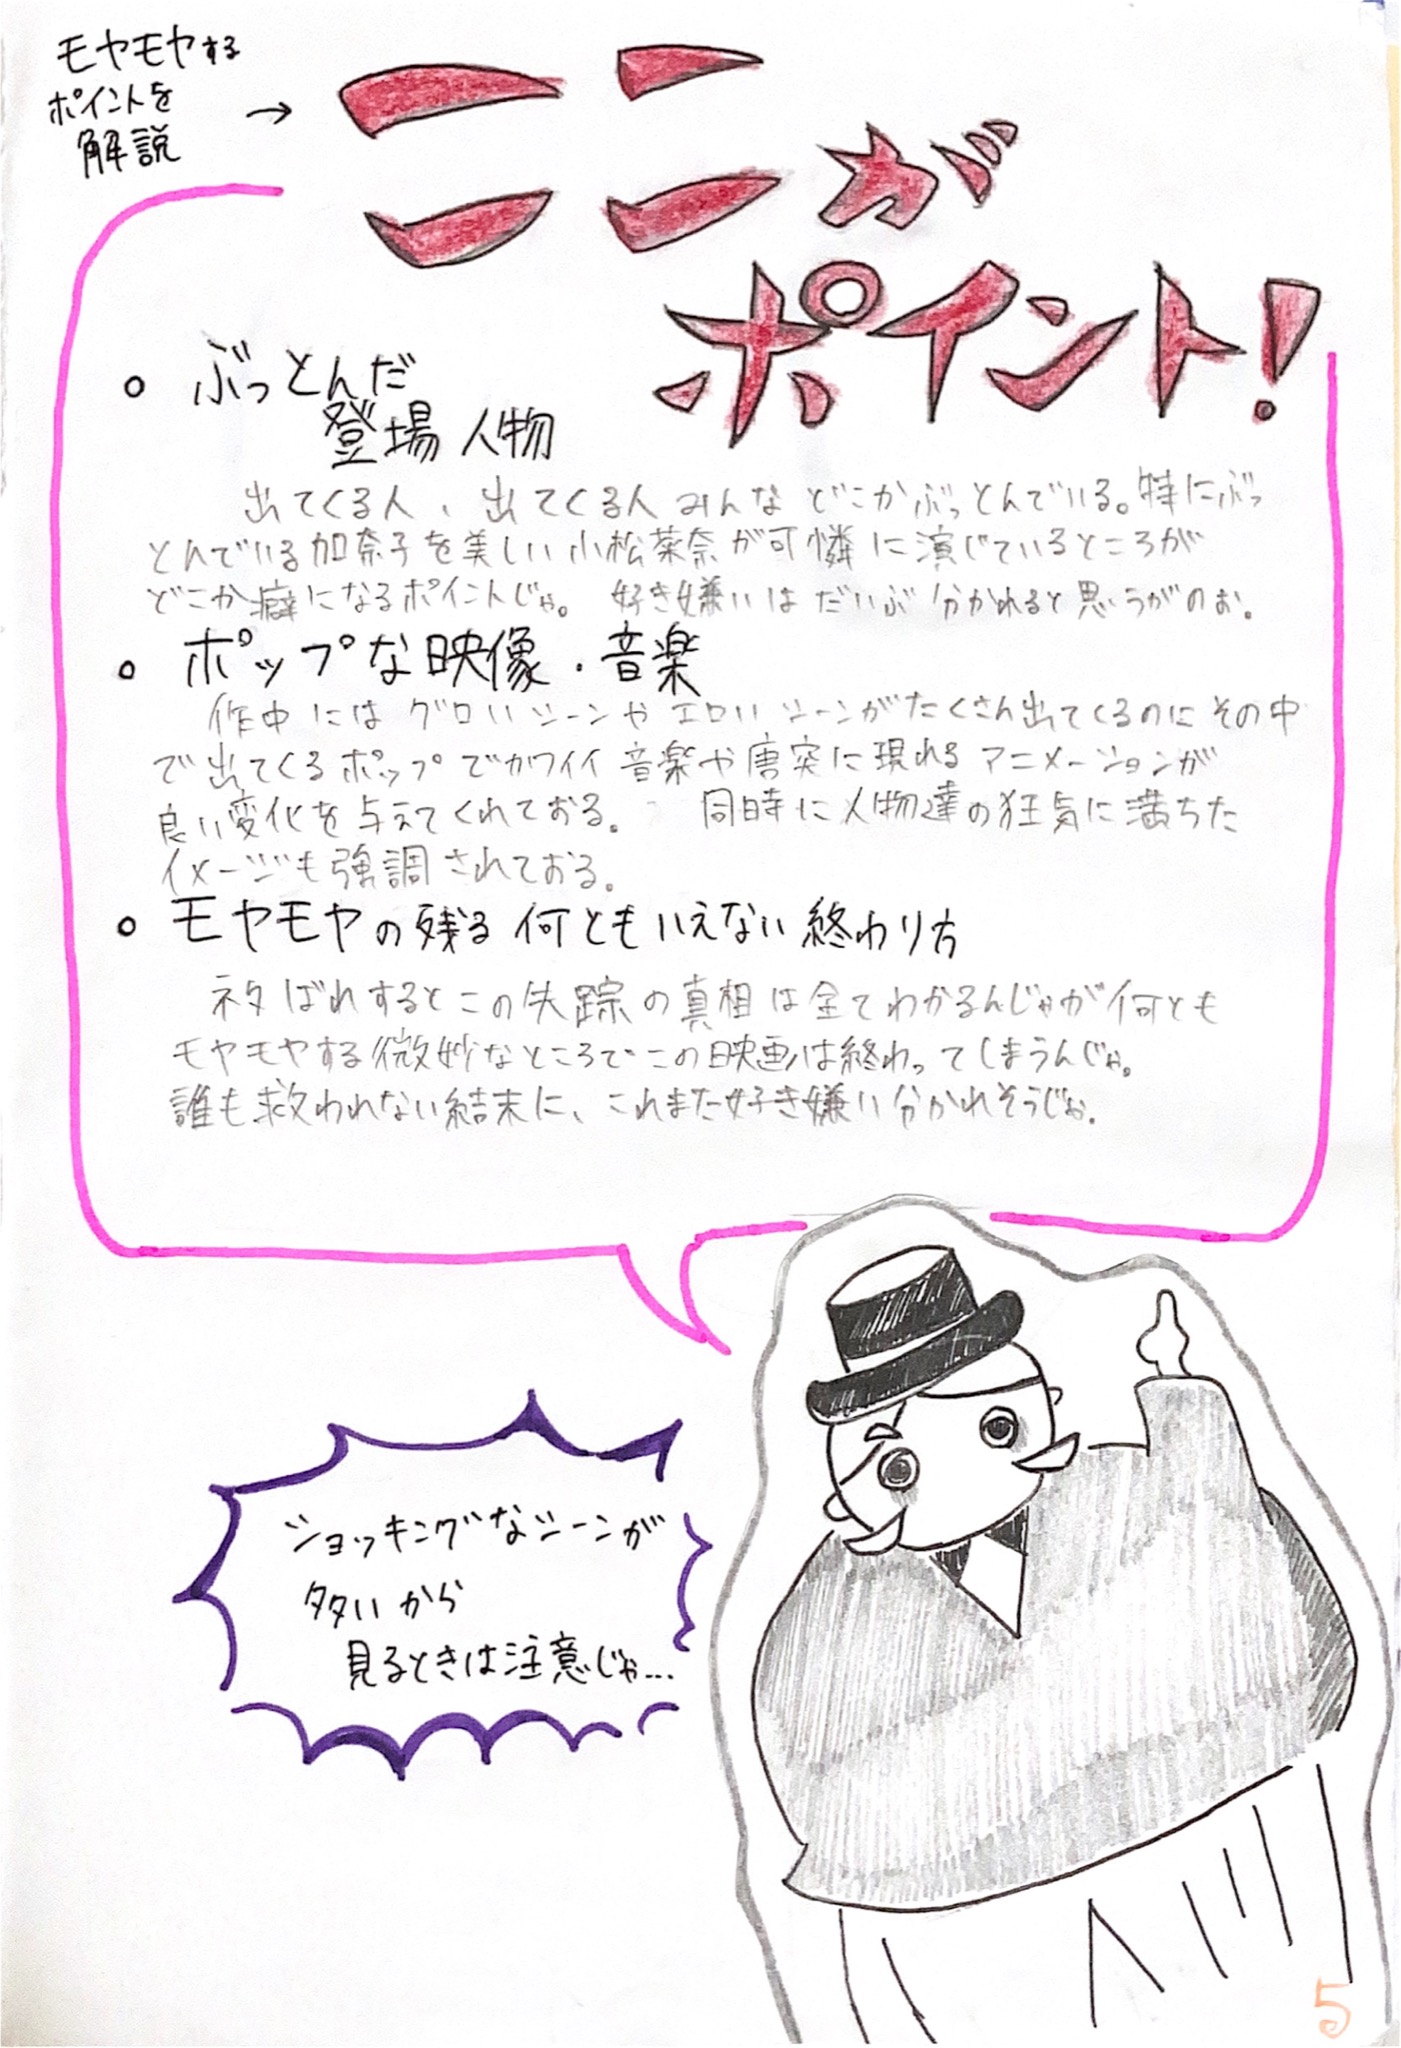 モヤモヤする
ポイントを
解説
→
ここが
ポイント!
ぶっとんだ
登場人物
出てくる人、出てくる人みんなどこかぶっとんでいる。特にぶっ
とんでいる加奈子を美しい小松菜奈が可憐に演じているところが
どこか癖になるポイントじゃ。好き嫌いはだいぶ分かれると思うがのぉ。
ポップな映像・音楽
作中にはグロいシーンやエロいシーンがたくさん出てくるのにその中
で出てくるポップでカワイイ音楽や唐突に現れるアニメーションが
良い変化を与えてくれておる。同時に人物達の狂気に満ちた
イメージも強調されておる。
モヤモヤの残る何ともいえない終わり方
ネタばれするとこの失踪の真相は全てわかるんじゃが何とも
モヤモヤする微妙なところでこの映画は終わってしまうんじゃ。
誰も救われない結末に、これまた好き嫌い分かれそうじゃ。
ショッキングなシーンが
多いから
見るときは注意じゃ…
5